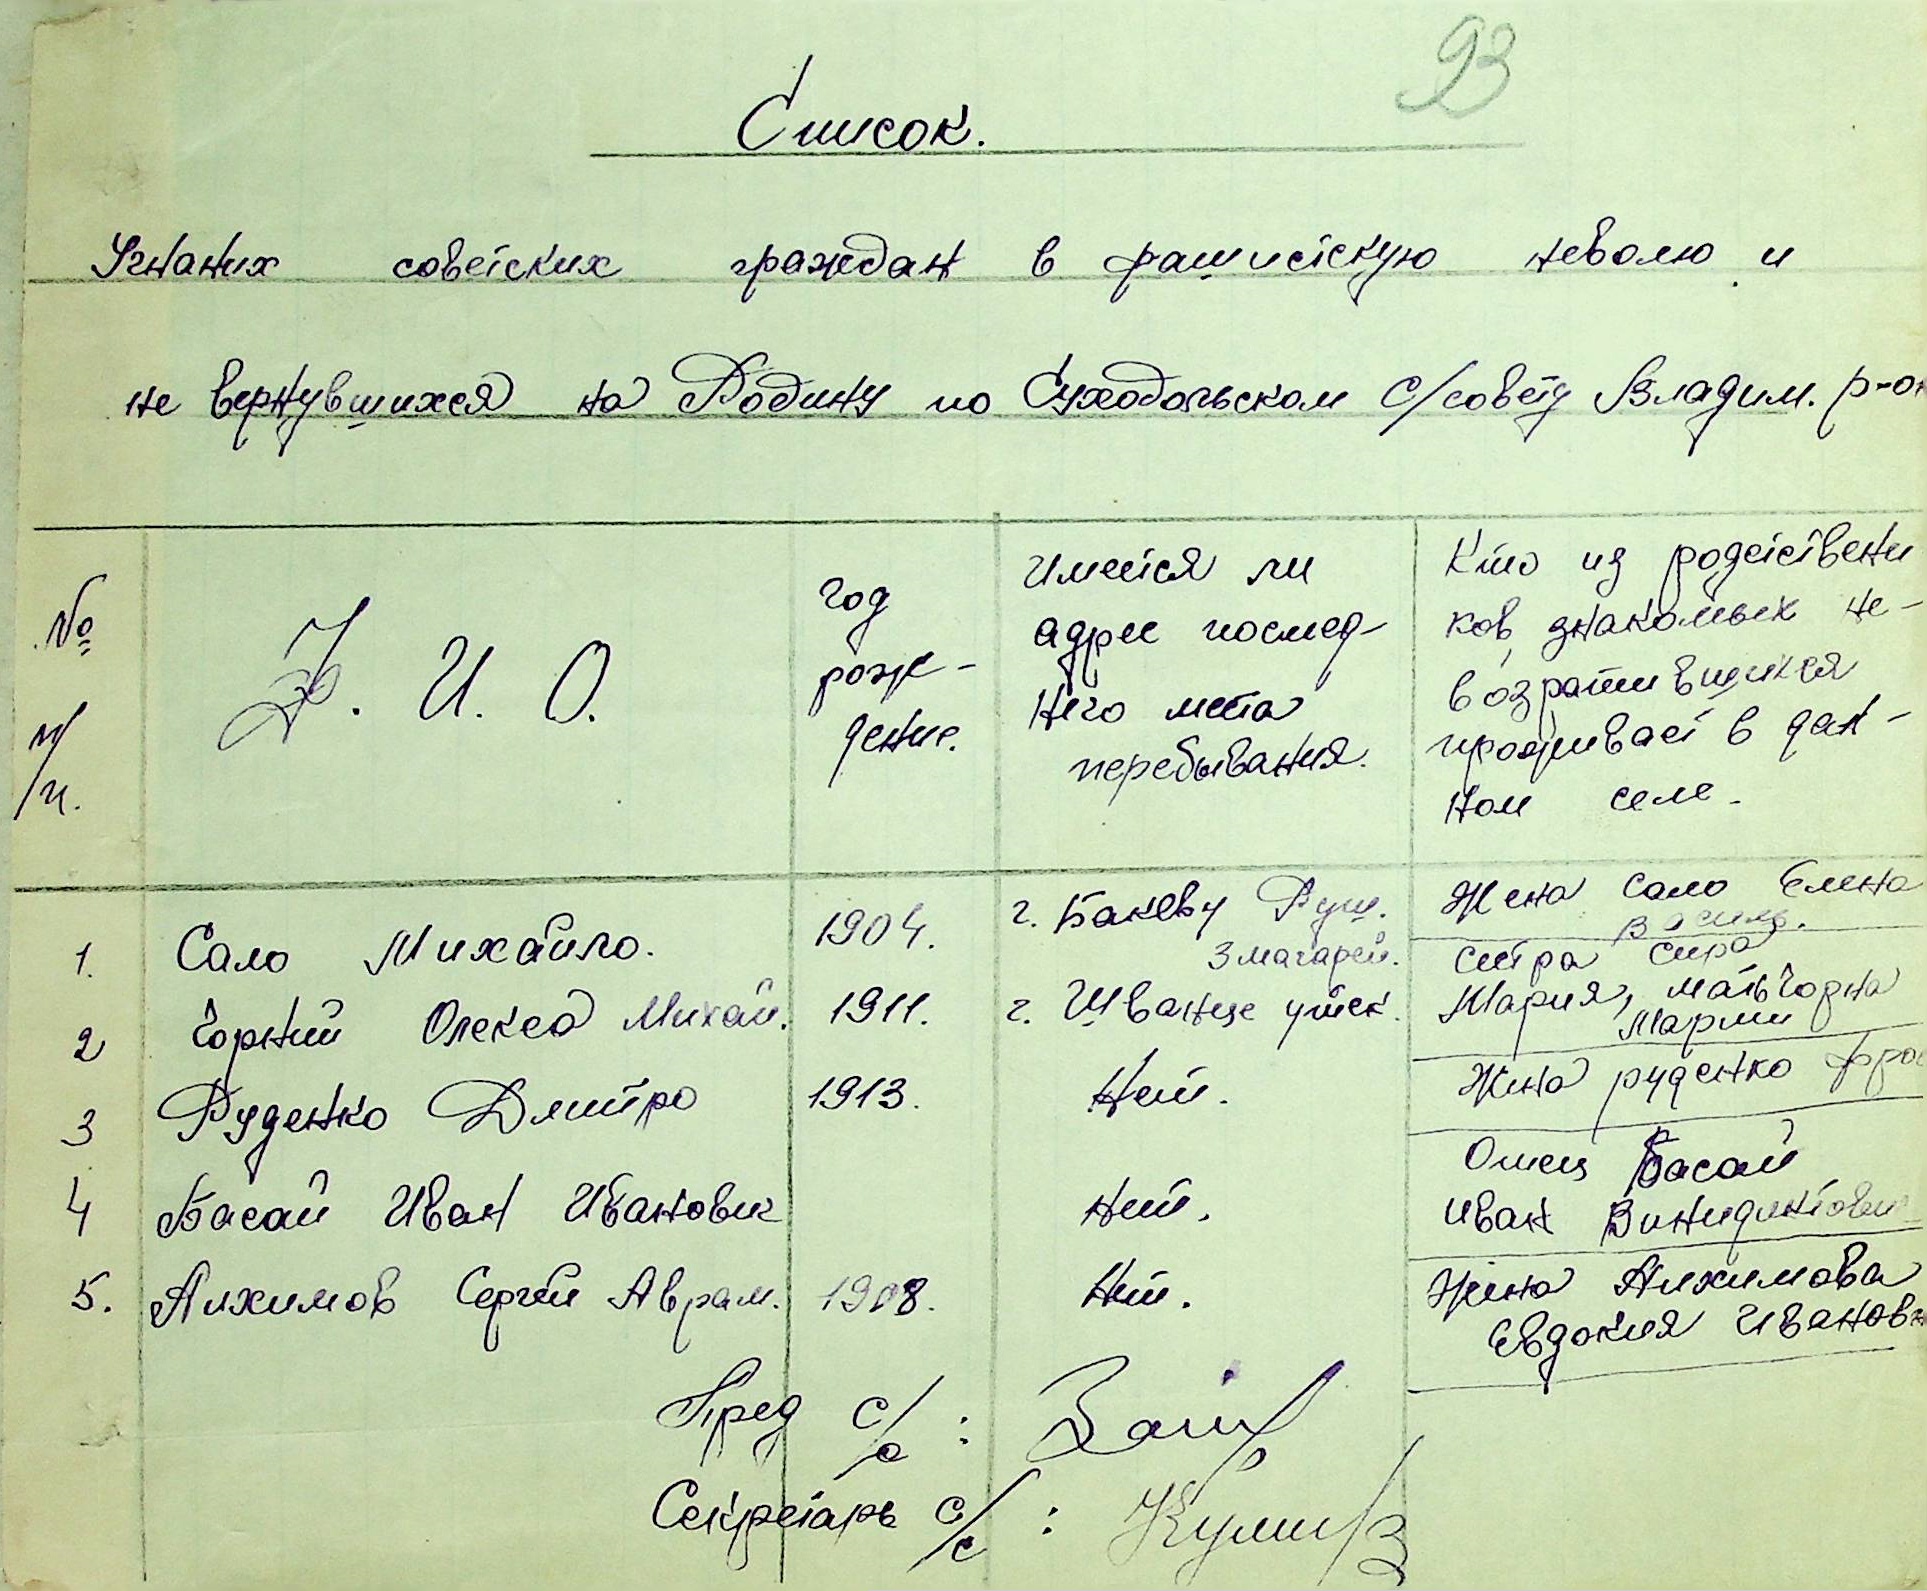 93
Список.
Угнаних советских граждан в фашистскую неволю и
не вернувшихся на Родину по Суходольском с/совету Владим. р-он
№ п/п.
Ф. И. О.
год
рож-
дение.
Имеется ли
адрес послед-
него места
перебывания.
Кто из родственни
ков знакомых не-
возратившихся
проживает в дан-
ном селе.
1. Сало Михайло. 1904. г. Бакеву Рум. Жена Сало Елена
Василь.
2 Чорний Олекса Михай. 1911. г. Сестра
Мария, мать Чорна
3 Руденко Дмитро 1913. Нет. Жена руденко
4 Басай Иван Иванович Нет. Отец Басай
Иван
5. Анхимов Сергей Аврам. 1908. Нет. Жена Анхимова
Евдокия Ивановн
Пред с/с:
Секретарь с/с: